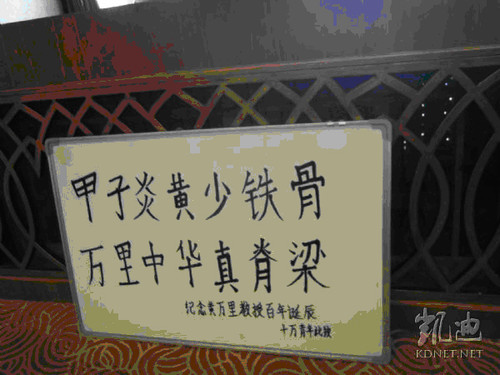 甲子炎黄少铁骨
万里中华真脊梁
纪念黄万里教授百年诞辰
十万青年敬挽
凯迪
KDNET.NET